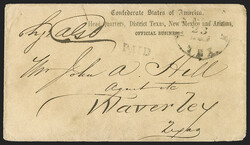 Confederate States of America.
Head-quarters, District Texas, New Mexico and Arizona,
OFFICIAL BUSINESS.
PAID
23
TEX.
Mr John A Hill
Waverley
Texas